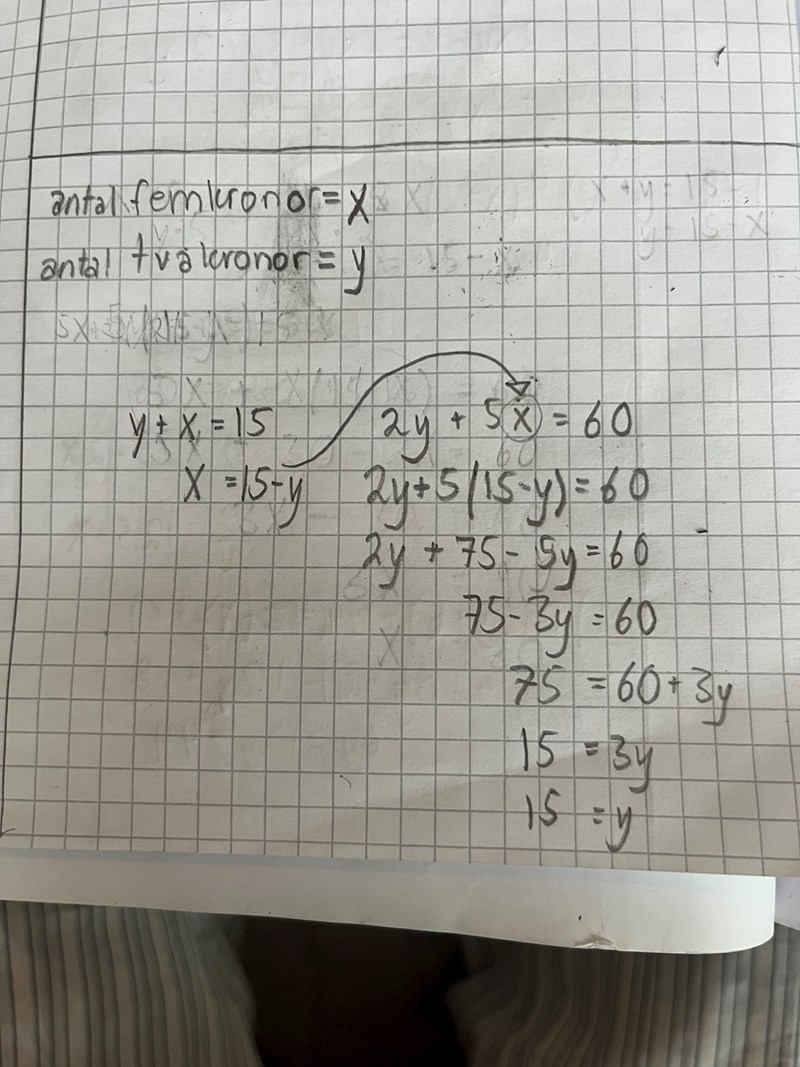 antal femkronor = x
antal tvåkronor = y
y + x = 15
x = 15 - y
2y + 5x = 60
2y + 5(15 - y) = 60
2y + 75 - 5y = 60
75 - 3y = 60
75 = 60 + 3y
15 = 3y
15 = y
x + y = 15
y = 15 - x